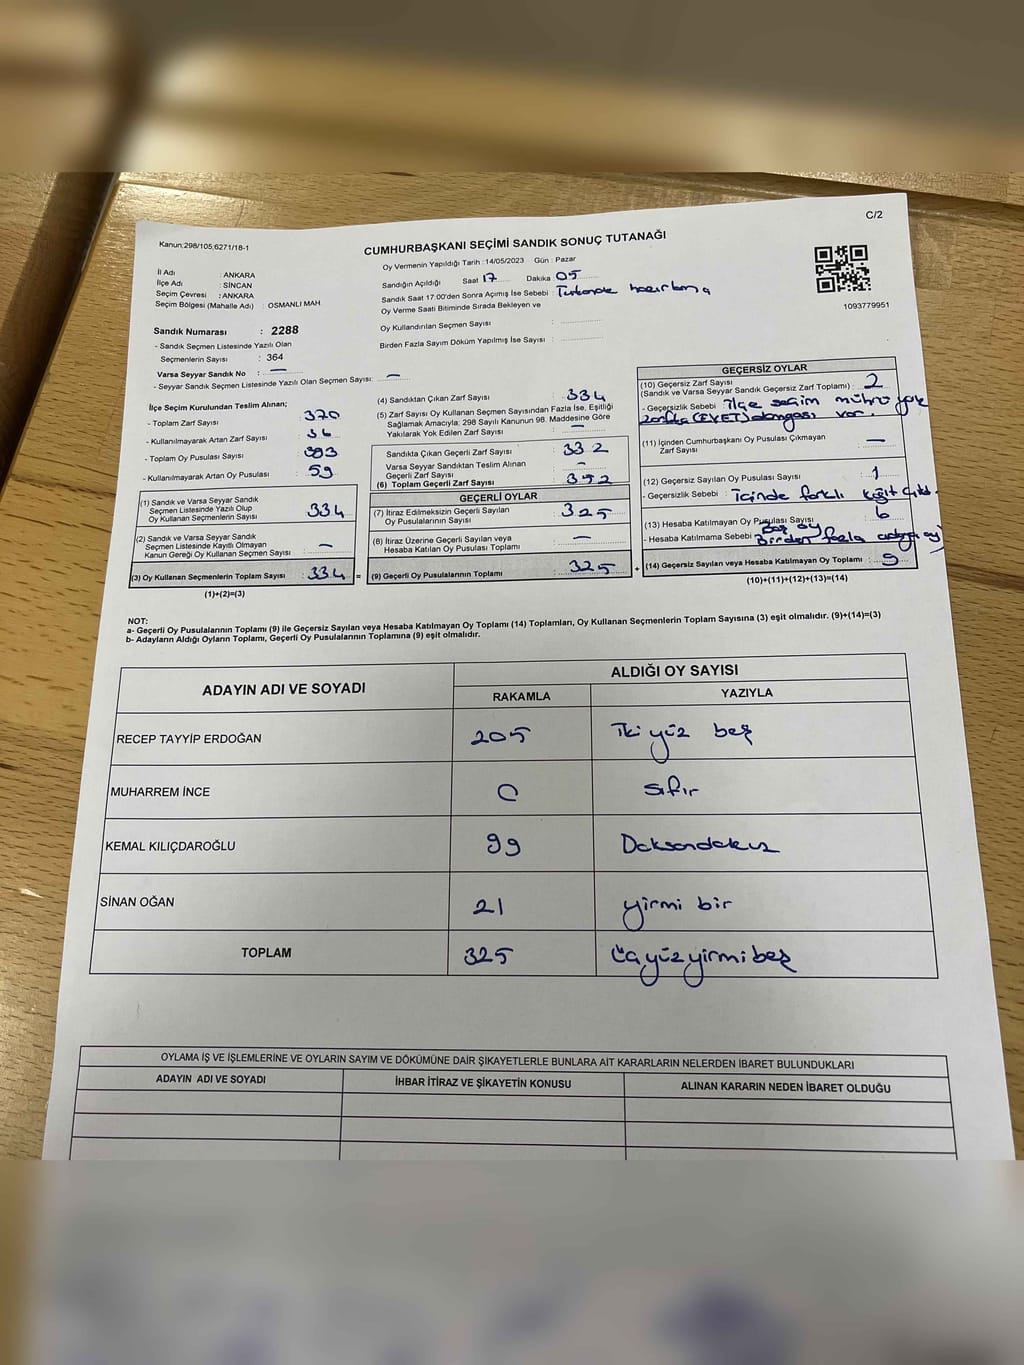 C/2
Kanun:298/105;6271/18-1
CUMHURBAŞKANI SEÇİMİ SANDIK SONUÇ TUTANAĞI
Oy Vermenin Yapıldığı Tarih : 14/05/2023 Gün : Pazar
İl Adı : ANKARA
İlçe Adı : SİNCAN
Seçim Çevresi : ANKARA
Seçim Bölgesi (Mahalle Adı) : OSMANLI MAH
Sandığın Açıldığı Saat 17 Dakika 05
Sandık Saat 17:00'den Sonra Açılmış İse Sebebi : Tutanak hazırlama
Oy Verme Saati Bitiminde Sırada Bekleyen ve
Oy Kullandırılan Seçmen Sayısı :
Birden Fazla Sayım Döküm Yapılmış İse Sayısı :
1093779951
Sandık Numarası : 2288
- Sandık Seçmen Listesinde Yazılı Olan
Seçmenlerin Sayısı : 364
Varsa Seyyar Sandık No : —
- Seyyar Sandık Seçmen Listesinde Yazılı Olan Seçmen Sayısı: —
İlçe Seçim Kurulundan Teslim Alınan;
- Toplam Zarf Sayısı : 370
- Kullanılmayarak Artan Zarf Sayısı : 36
- Toplam Oy Pusulası Sayısı : 393
- Kullanılmayarak Artan Oy Pusulası : 59
(1) Sandık ve Varsa Seyyar Sandık
Seçmen Listesinde Yazılı Olup
Oy Kullanan Seçmenlerin Sayısı : 334
(2) Sandık ve Varsa Seyyar Sandık
Seçmen Listesinde Kayıtlı Olmayan
Kanun Gereği Oy Kullanan Seçmen Sayısı : —
(3) Oy Kullanan Seçmenlerin Toplam Sayısı : 334 =
(1)+(2)=(3)
(4) Sandıktan Çıkan Zarf Sayısı : 334
(5) Zarf Sayısı Oy Kullanan Seçmen Sayısından Fazla İse, Eşitliği
Sağlamak Amacıyla; 298 Sayılı Kanunun 98. Maddesine Göre
Yakılarak Yok Edilen Zarf Sayısı : —
Sandıkta Çıkan Geçerli Zarf Sayısı : 332
Varsa Seyyar Sandıktan Teslim Alınan
Geçerli Zarf Sayısı : —
(6) Toplam Geçerli Zarf Sayısı : 332
GEÇERLİ OYLAR
(7) İtiraz Edilmeksizin Geçerli Sayılan
Oy Pusulalarının Sayısı : 325
(8) İtiraz Üzerine Geçerli Sayılan ve
Hesaba Katılan Oy Pusulası Toplamı : —
(9) Geçerli Oy Pusulalarının Toplamı : 325 +
GEÇERSİZ OYLAR
(10) Geçersiz Zarf Sayısı
(Sandık ve Varsa Seyyar Sandık Geçersiz Zarf Toplamı) : 2
- Geçersizlik Sebebi : İlçe seçim mührü yok
zarfta (EVET) damgası var.
(11) İçinden Cumhurbaşkanı Oy Pusulası Çıkmayan
Zarf Sayısı : —
(12) Geçersiz Sayılan Oy Pusulası Sayısı : 1
- Geçersizlik Sebebi : İçinde farklı kağıt çıktı.
(13) Hesaba Katılmayan Oy Pusulası Sayısı : 6
- Hesaba Katılmama Sebebi : Boş oy
Birden fazla adaya oy
(14) Geçersiz Sayılan veya Hesaba Katılmayan Oy Toplamı : 9
(10)+(11)+(12)+(13)=(14)
NOT:
a- Geçerli Oy Pusulalarının Toplamı (9) ile Geçersiz Sayılan veya Hesaba Katılmayan Oy Toplamı (14) Toplamları, Oy Kullanan Seçmenlerin Toplam Sayısına (3) eşit olmalıdır. (9)+(14)=(3)
b- Adayların Aldığı Oyların Toplamı, Geçerli Oy Pusulalarının Toplamına (9) eşit olmalıdır.
ADAYIN ADI VE SOYADI ALDIĞI OY SAYISI
RAKAMLA YAZIYLA
RECEP TAYYİP ERDOĞAN 205 İki yüz beş
MUHARREM İNCE 0 sıfır
KEMAL KILIÇDAROĞLU 99 Doksandokuz
SİNAN OĞAN 21 yirmi bir
TOPLAM 325 Üçyüzyirmibeş
OYLAMA İŞ VE İŞLEMLERİNE VE OYLARIN SAYIM VE DÖKÜMÜNE DAİR ŞİKAYETLERLE BUNLARA AİT KARARLARIN NELERDEN İBARET BULUNDUKLARI
ADAYIN ADI VE SOYADI İHBAR İTİRAZ VE ŞİKAYETİN KONUSU ALINAN KARARIN NEDEN İBARET OLDUĞU